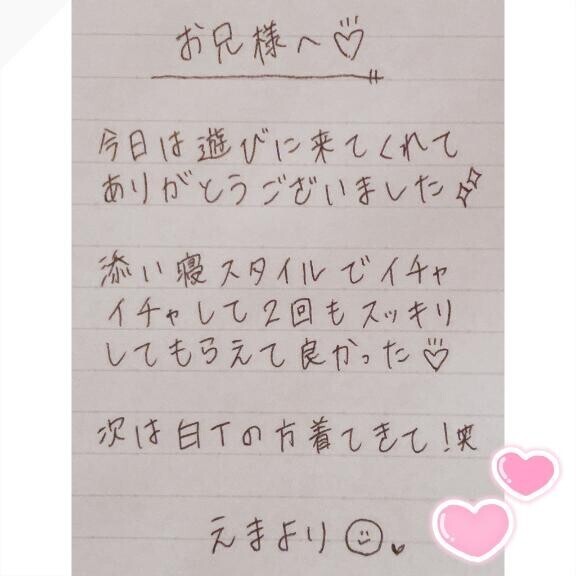 お兄様へ♡
今日は遊びに来てくれて
ありがとうございました
添い寝スタイルでイチャ
イチャして2回もスッキリ
してもらえて良かった♡
次は白Tの方着てきて!笑
えまより